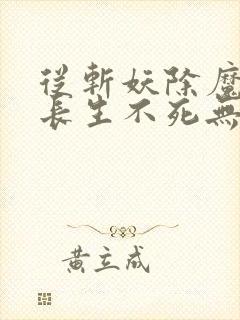 從斬妖除魔
長生不死無
黃立成